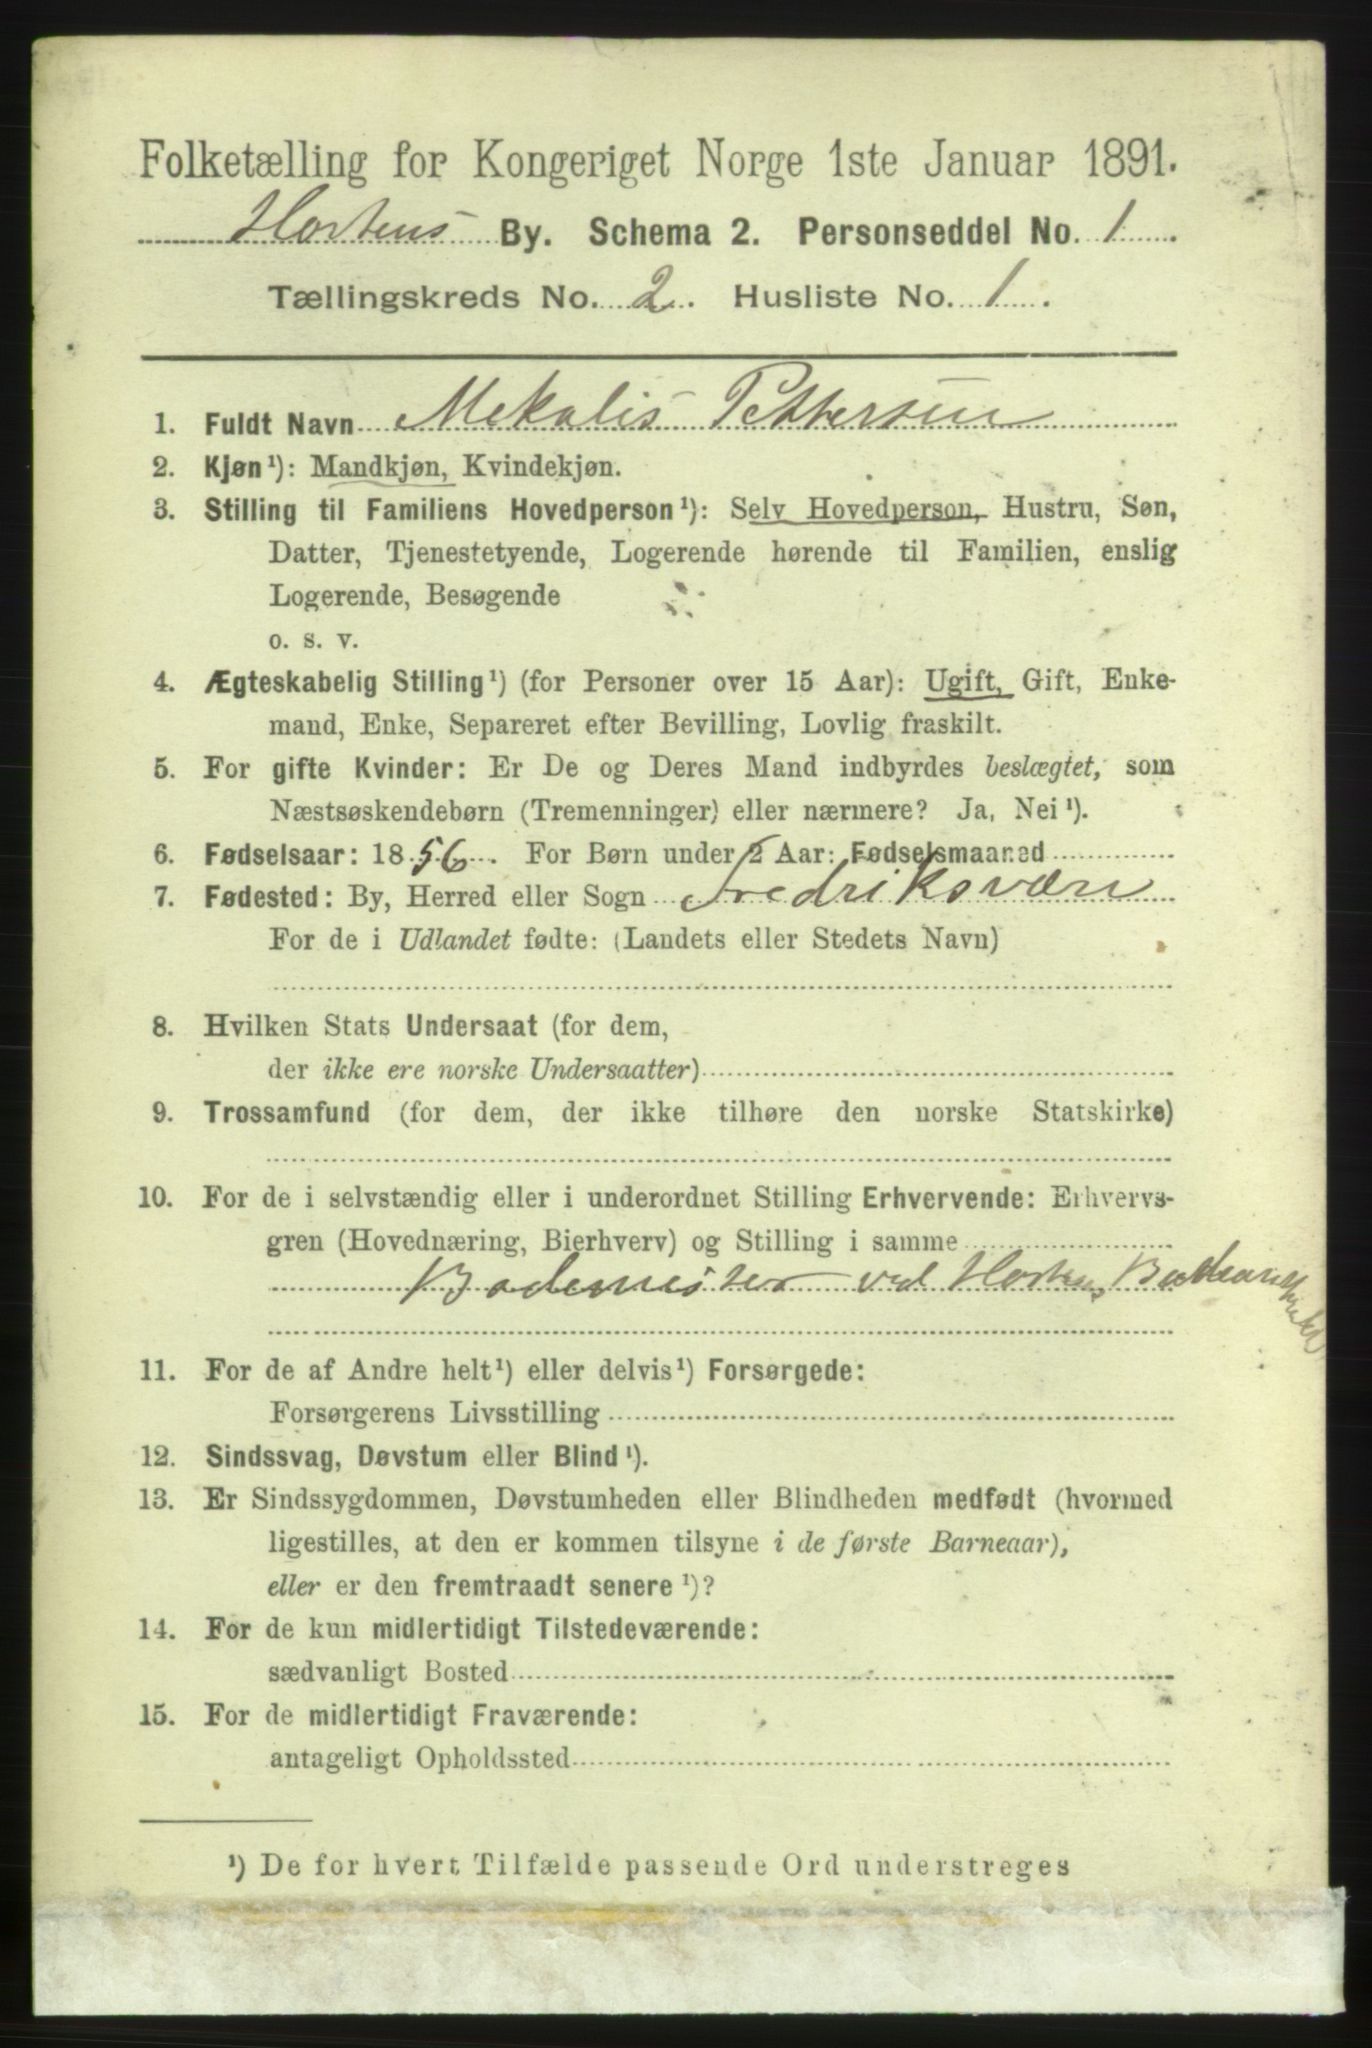 Folketælling for Kongeriget Norge 1ste Januar 1891.
Hortens By. Schema 2. Personseddel No. 1
Tællingskreds No. 2. Husliste No. 1.
1. Fuldt Navn Mekalis Pettersen
2. Kjøn¹): Mandkjøn, Kvindekjøn.
3. Stilling til Familiens Hovedperson¹): Selv Hovedperson, Hustru, Søn,
Datter, Tjenestetyende, Logerende hørende til Familien, enslig
Logerende, Besøgende
o. s. v.
4. Ægteskabelig Stilling¹) (for Personer over 15 Aar): Ugift, Gift, Enke-
mand, Enke, Separeret efter Bevilling, Lovlig fraskilt.
5. For gifte Kvinder: Er De og Deres Mand indbyrdes beslægtet, som
Næstsøskendebørn (Tremenninger) eller nærmere? Ja, Nei¹).
6. Fødselsaar: 1856. For Børn under 2 Aar: Fødselsmaaned
7. Fødested: By, Herred eller Sogn Fredriksværn
For de i Udlandet fødte: (Landets eller Stedets Navn)
8. Hvilken Stats Undersaat (for dem,
der ikke ere norske Undersaatter)
9. Trossamfund (for dem, der ikke tilhøre den norske Statskirke)
10. For de i selvstændig eller i underordnet Stilling Erhvervende: Erhvervs-
gren (Hovednæring, Bierhverv) og Stilling i samme
Bademester ved Hortens
11. For de af Andre helt¹) eller delvis¹) Forsørgede:
Forsørgerens Livsstilling
12. Sindssvag, Døvstum eller Blind¹).
13. Er Sindssygdommen, Døvstumheden eller Blindheden medfødt (hvormed
ligestilles, at den er kommen tilsyne i de første Barneaar),
eller er den fremtraadt senere¹)?
14. For de kun midlertidigt Tilstedeværende:
sædvanligt Bosted
15. For de midlertidigt Fraværende:
antageligt Opholdssted
¹) De for hvert Tilfælde passende Ord understreges